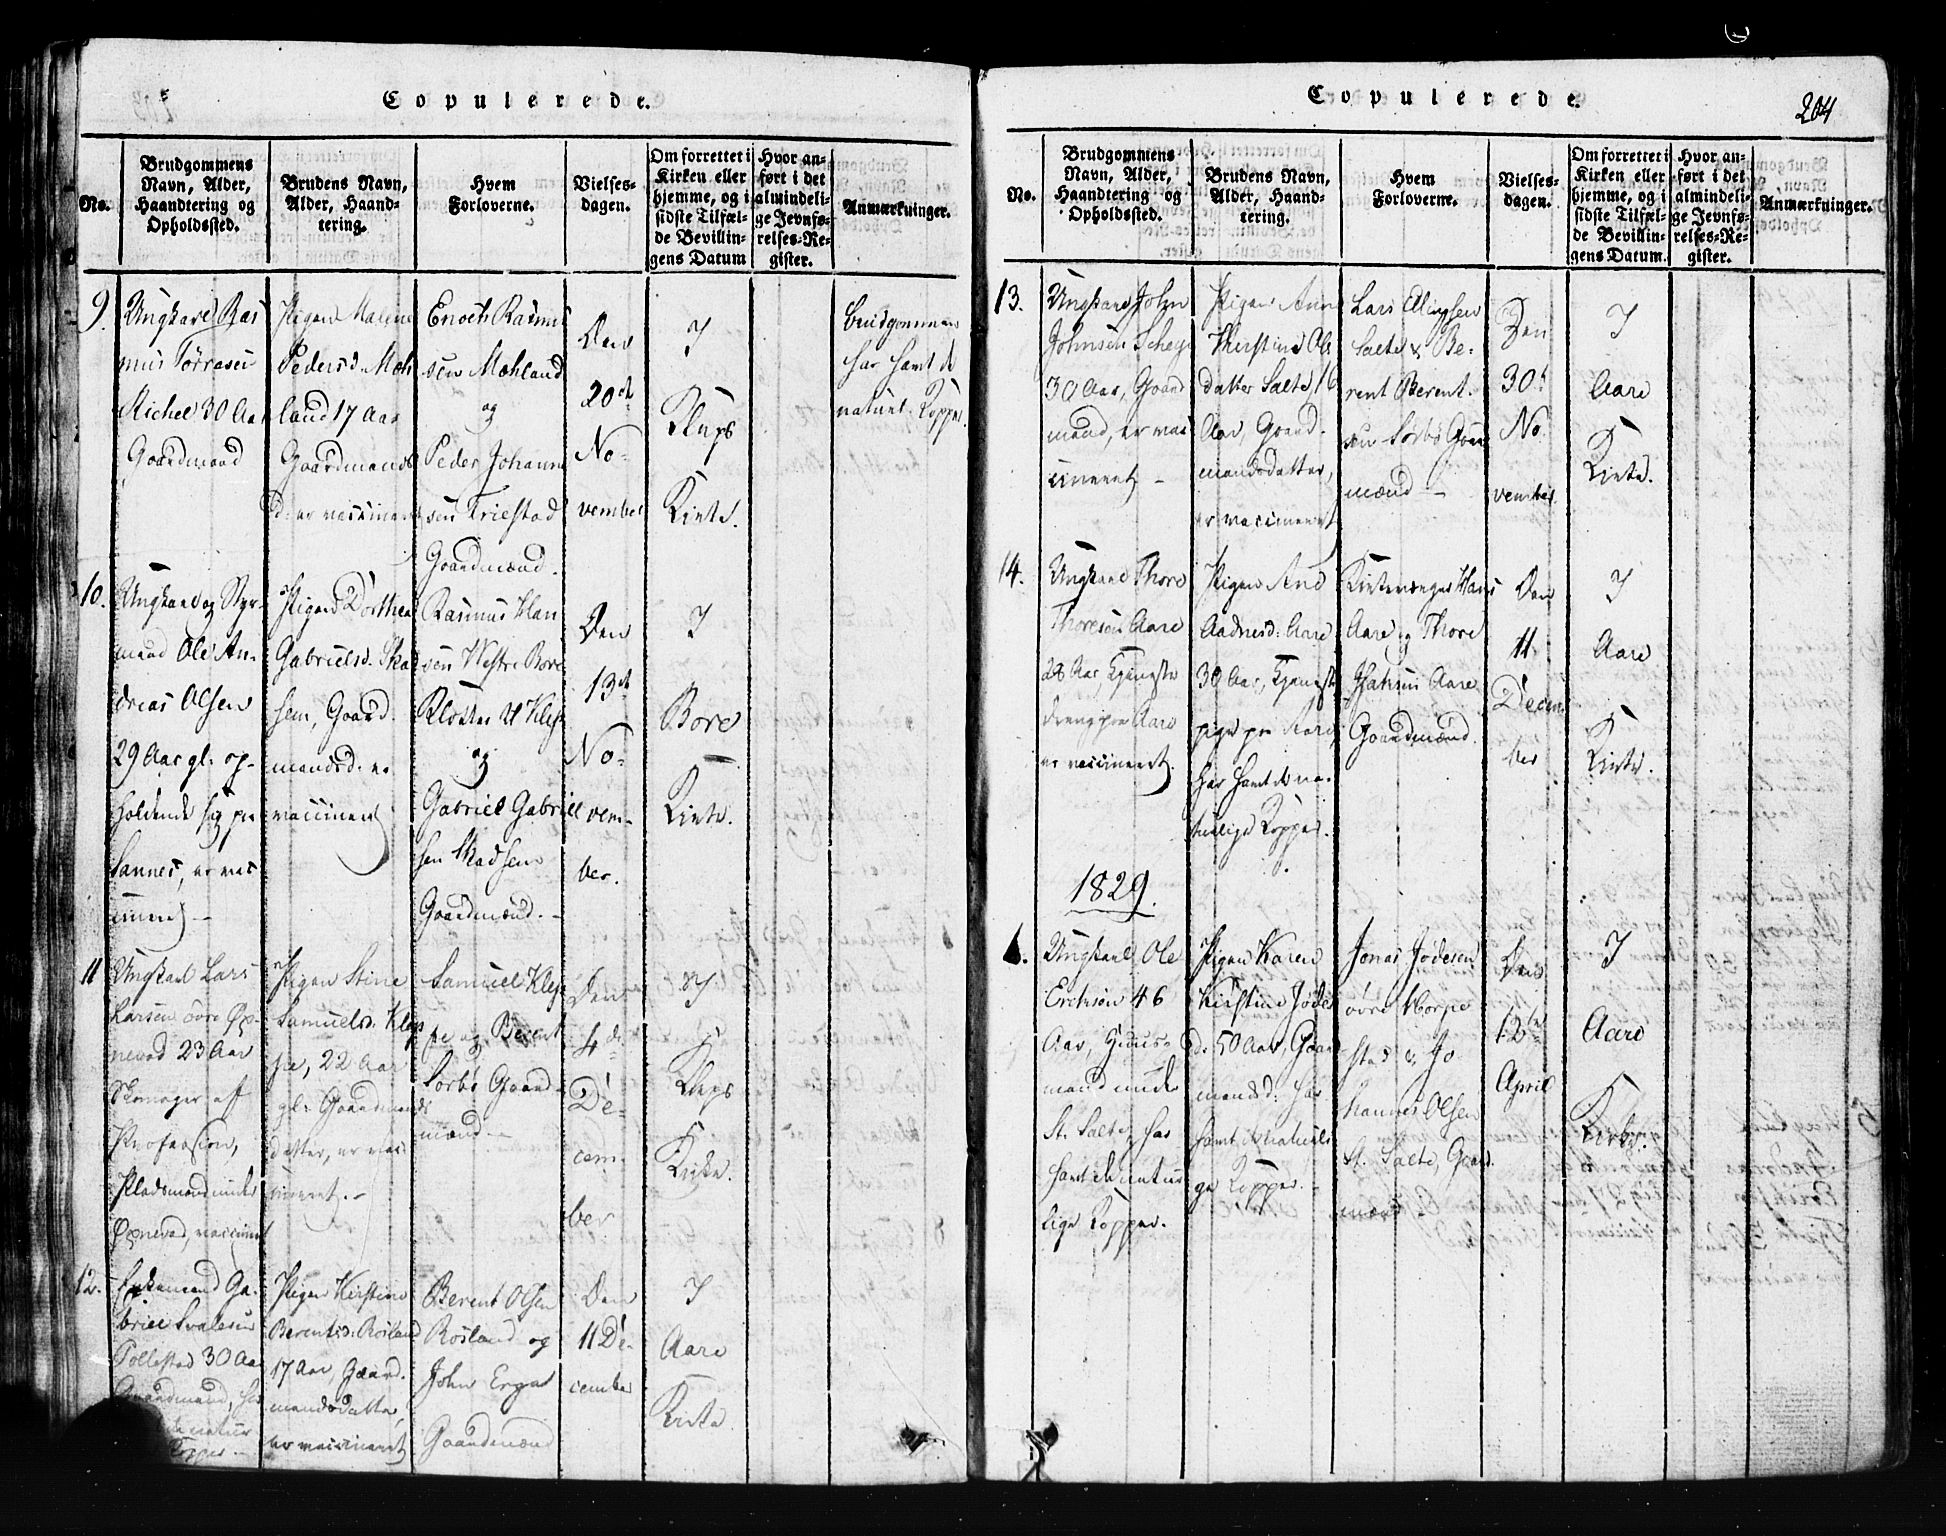 Copulerede.
No.
Brudgommens
Navn, Alder,
Haandtering og
Opholdssted.
Brudens Navn,
Alder, Haand-
tering.
Hvem
Forloverne.
Vielses-
dagen.
Om forrettet i
Kirken eller
hjemme, og i
sidste Tilfæl-
de Bevillin-
gens Datum
Hvor an-
ført i det
almindeli-
ge Jevnfø-
relses-Re-
gister.
Anmærkninger.
9.
Ungkarl Ras
mus Tørresen
30 Aar
Gaardmand
Pigen Malene
Pedersd. Møh
land 17 Aar
Gaardmands
d: er vaccineret
Enoch Rasmus
sen Møhland
og
Peder Johanne
sen Friestad
Gaardmænd.
Den
20de
No-
vember
I
Kleps
Kirke.
Brudgommen
har havt de
naturl. Kopper.
10.
Ungkarl og Styr-
mand Ole An-
dreas Olsen
29 Aar gl. op-
holdende sig paa
Sannes, er vac
cineret –
Pigen Dorthea
Gabrielsd. Skad
sem, Gaard-
mandsd. er
vaccineret
Rasmus Han
sen Westre Bore
Kloster &
og
Gabriel Gabriel
sen Skadsem
Gaardmænd. –
Den
13de
No-
vem-
ber.
I
Bore
–
Kirke.
11
Ungkarl Lars
Larsen øvre Øx-
nevad 23 Aar
Skomager af
Profession,
Pladsmand under
Øxnevad, vaccineret
Pigen Stine
Samuelsd. Klep
pe, 22 Aar
gl. Gaardmands
datter, er vac
cineret. –
Samuel Klep
pe og Berent
Sørbø Gaard-
mænd –
Den
4de
De-
cem-
ber
I
Kleps
Kirke.
12.
Enkemand Ga-
briel Svalesen
Tollestad 30 Aar
Gaardmand, har
natur
Kopper –
Pigen Kirstine
Berentsd: Rosland
17 Aar, Gaard-
mandsdatter,
er vaccineret
Berent Olsen
Rosland og
John Erga
Gaardmænd
Den
11 De-
cember
I
Aare
Kirke
Copulerede.
204
No.
Brudgommens
Navn, Alder,
Haandtering og
Opholdssted.
Brudens Navn,
Alder, Haand-
tering.
Hvem
Forloverne.
Vielses-
dagen.
Om forrettet i
Kirken eller
hjemme, og i
sidste Tilfæl-
de Bevillin-
gens Datum.
Hvor an-
ført i det
almindeli-
ge Jevnfø-
relses-Re-
gister.
Anmærkninger.
13.
Ungkarl John
Johnsen
30 Aar, Gaard
mand, er vac
cineret –
Pigen Ann
Kherstine Ols
datter Salte 16
Aar, Gaard-
mandsdatter,
er vaccineret
Lars Ellingsen
Salte & Be-
rent Berent-
sen Sørbø Gaar
mænd –
Den
30te
No-
vember
I
Aare
Kirke.
14.
Ungkarl Thore
Thoresen Aare
28 Aar, Tjeneste
dreng paa Aare
er vaccineret.
Pigen And
Aadnesd: Aare
30 Aar, Tjeneste
pige paa Aare,
har havt de na-
turlige Kopper.
Kirkesanger Hans
Aare og Thore
Aare
Gaardmænd.
Den
11
Decem
ber
I
Aare
Kirke.
1829.
1.
Ungkarl Ole
Erichsen 46
Aar, Huus-
mand under
St. Salte, har
havt de natur
lige Kopper.
Pigen Karen
Kirstine Jødes
d. 50 Aar, Gaard
mandsd: har
havt de naturli
ge Kopper. –
Jonas Jødesen
øvre Horpe
stad & Jo
hannes Olsen
St. Salte, Gaard
mænd –
Den
12te
April
I
Aare
Kirke.